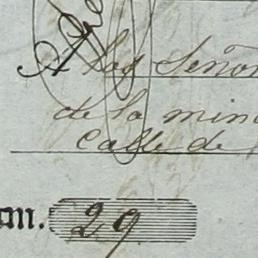 A los Señor
de la min
Calle de
um. 29